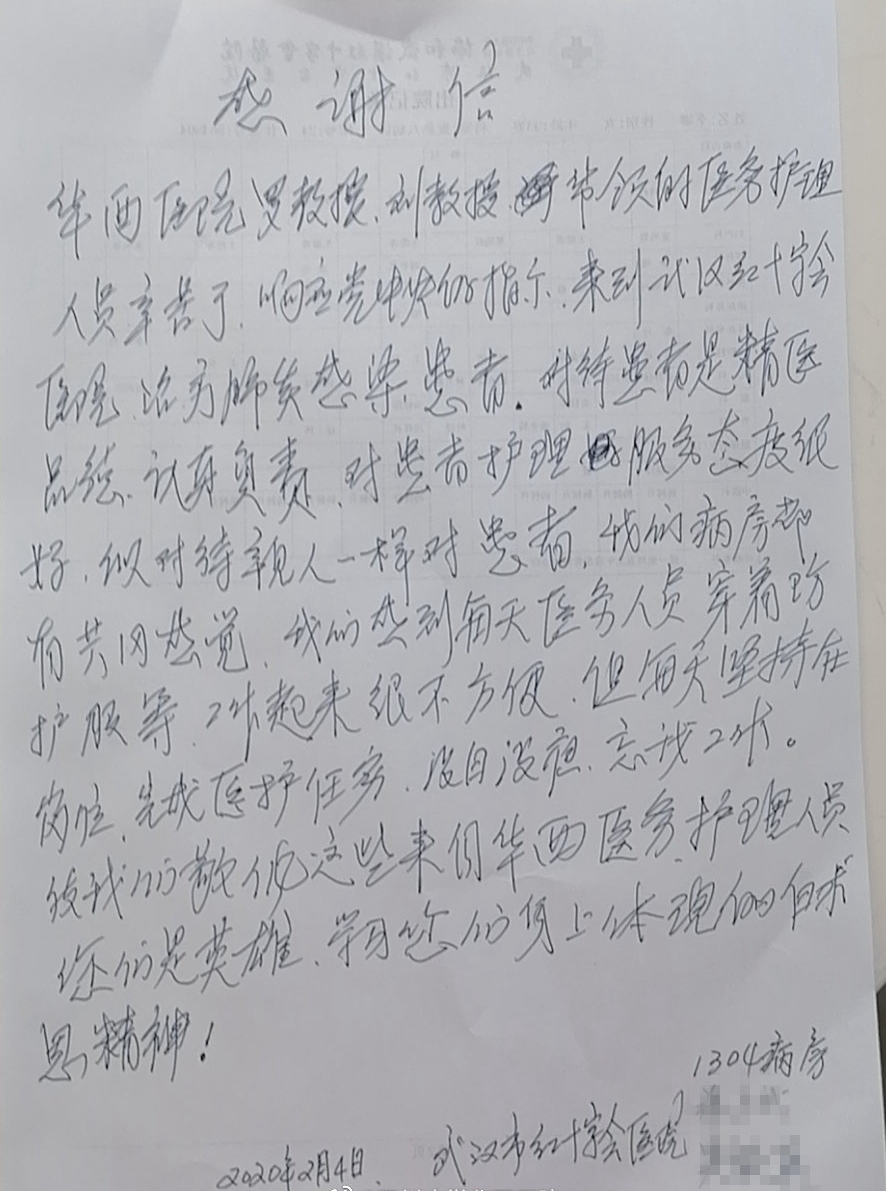 感谢信
华西医院罗教授、刘教授带领的医务护理
人员辛苦了、响应党中央的指示、来到武汉红十字会
医院、治疗肺炎感染患者.对待患者是精医
品德、认真负责、对患者护理服务态度很
好、似对待亲人一样对患者、我们病房都
有共同感觉、我们感到每天医务人员穿着防
护服等、工作起来很不方便、但每天坚持在
岗位、完成医护任务、没日没夜、忘我工作。
使我们敬佩这些来自华西医务、护理人员
您们是英雄、学习您们身上体现的白求
恩精神!
1304病房
武汉市红十字会医院
2020年2月4日.